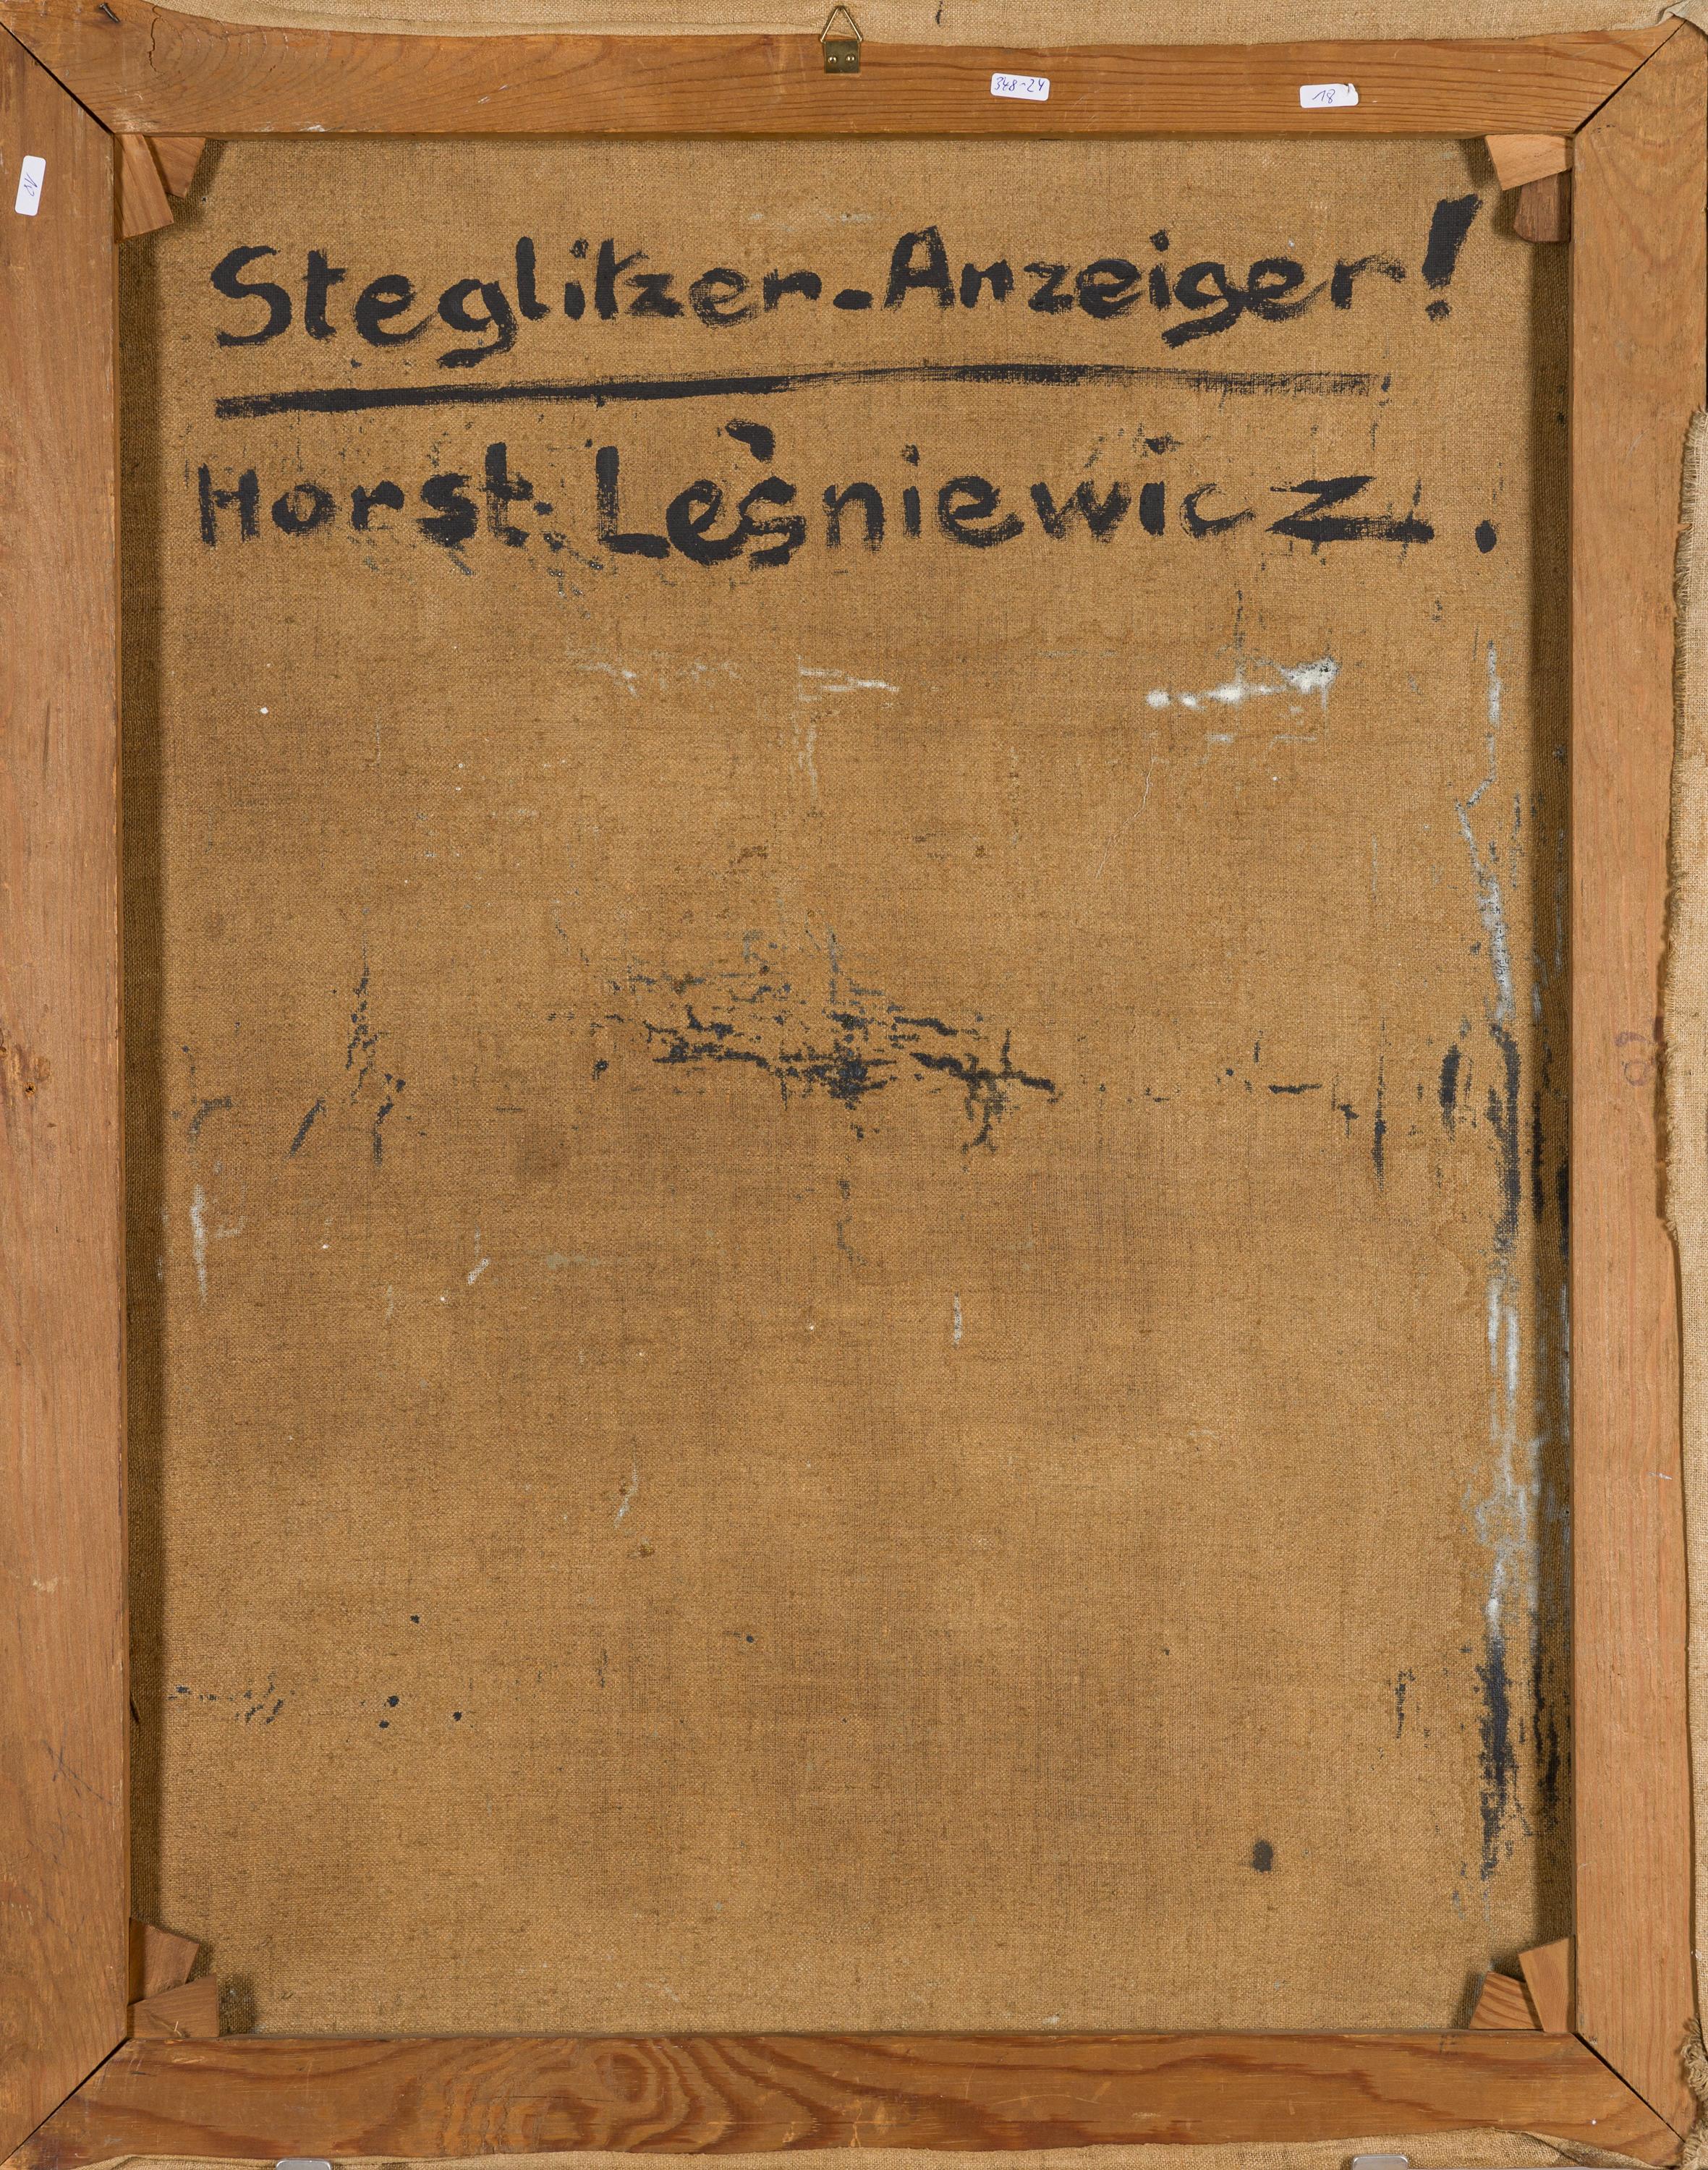 348-24
18
Steglitzer-Anzeiger!
Horst Leśniewicz.